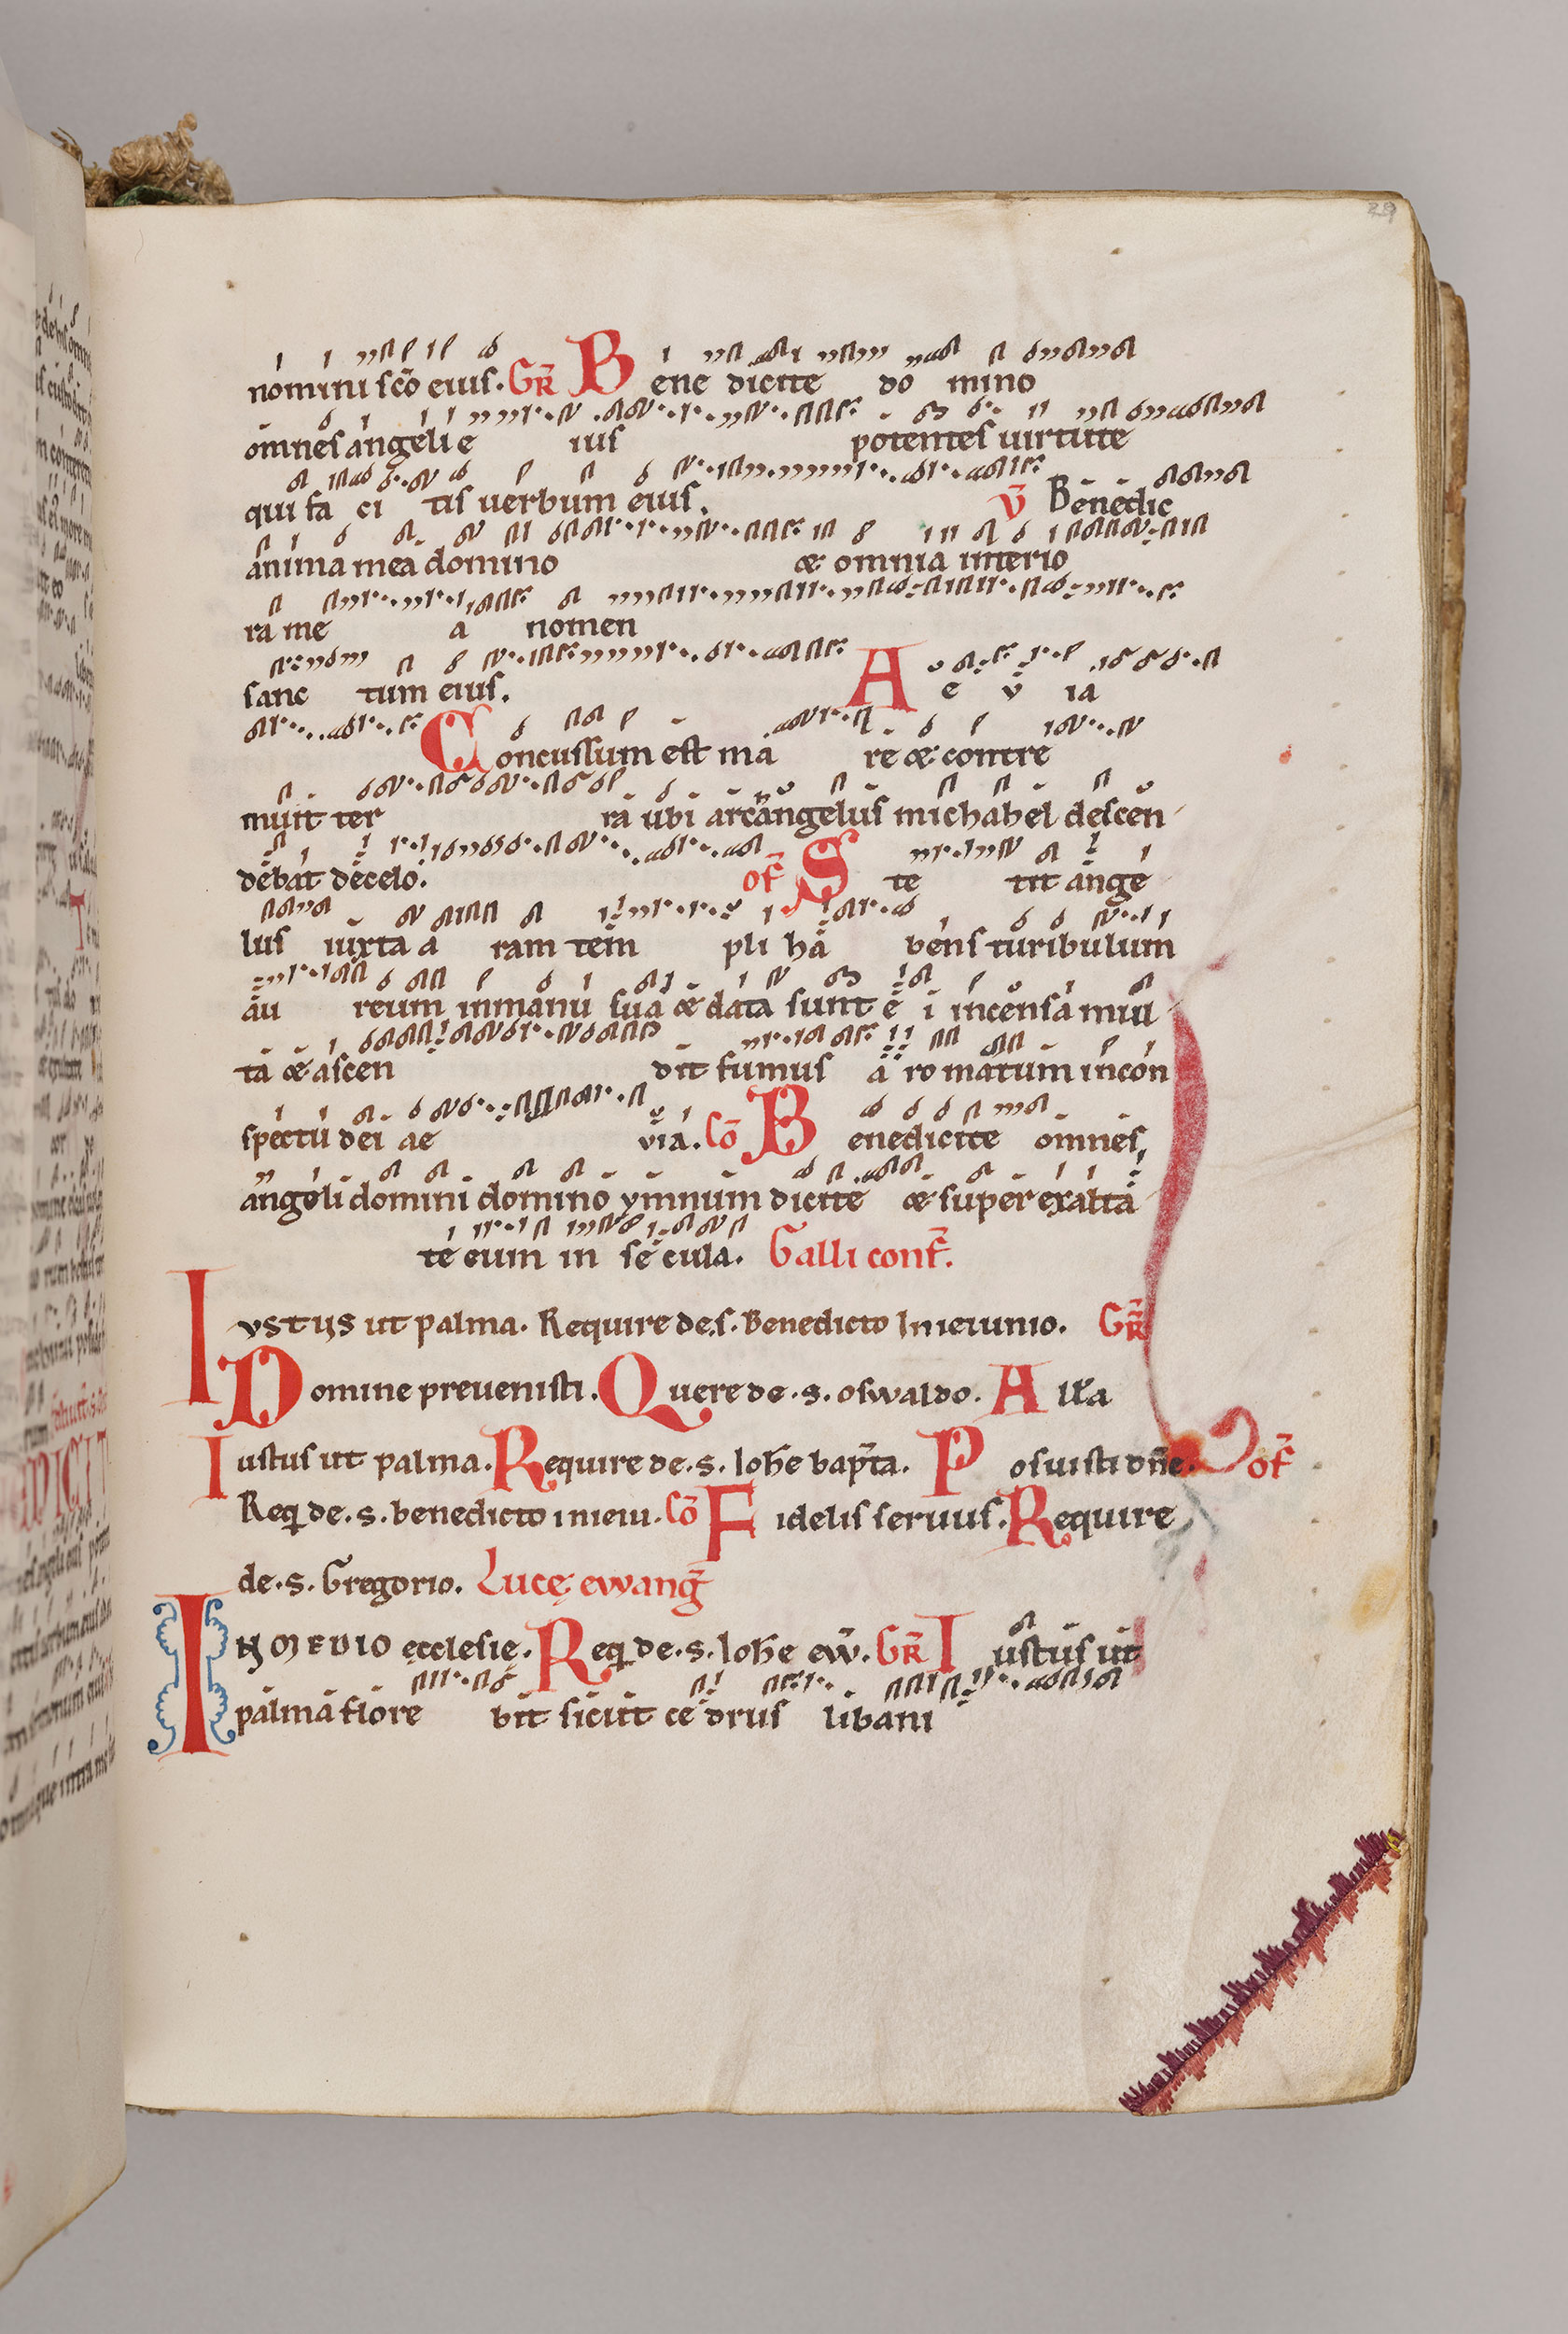 29
nomini sc̄o eius. GR̄ Bene dicite do mino
omnes angeli e ius potentes uirtute
qui fa ci tis uerbum eius. v̄ Benedic
anima mea domino & omnia interio
ra me a nomen
sanc tum eius. A e v ia
Concussum est ma re & contre
muit ter ra ubi archangelus michahel descen
debat decelo. of̄ Ste tit ange
lus iuxta a ram tem pli ha bens turibulum
au reum inmanu sua & data sunt e i incensa mul
ta & ascen dit fumus a ro matum incon
spectu dei ae via. Cō Benedicite omnes
angeli domini domino ymnum dicite & superexalta
te eum in se cula. Galli conf̄.
Ivstus ut palma. Require de.s. Benedicto Inieiunio. GR̄
Domine preuenisti. Quere de.s. oswaldo. A ll'a
Iustus ut palma. Require de.s. Ioh̄e bap̄ta. Posuisti dn̄e. of̄
Req̄ de.s. benedicto inieiu. Cō Fidelis seruus. Require
de.s. Gregorio. Lucę ewanḡ
IN MEDIO ecclesię. Req̄ de.s. Ioh̄e ew̄. GR̄ Iustus ut
palma flore bit sicut ce drus libani